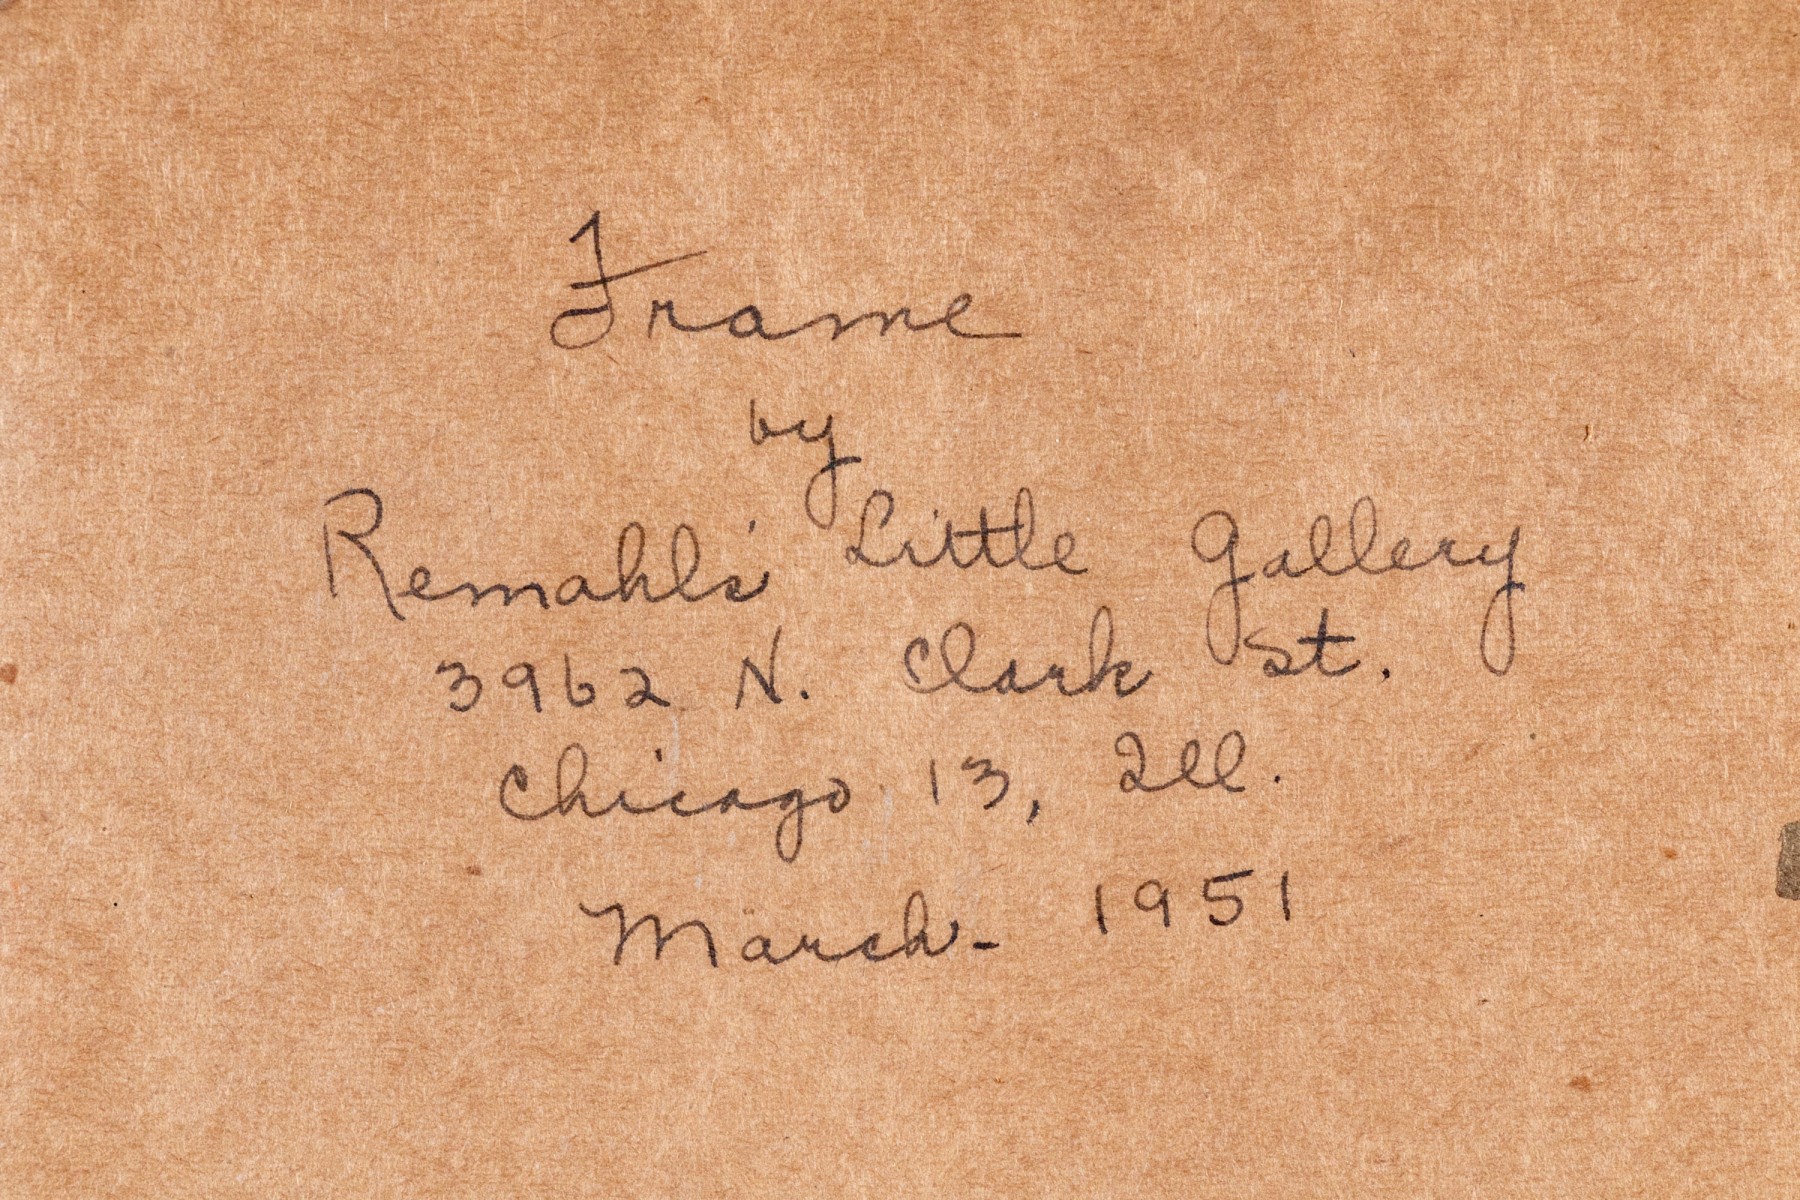 Frame
by
Remahls' Little Gallery
3962 N. Clark St.
Chicago 13, Ill.
March - 1951